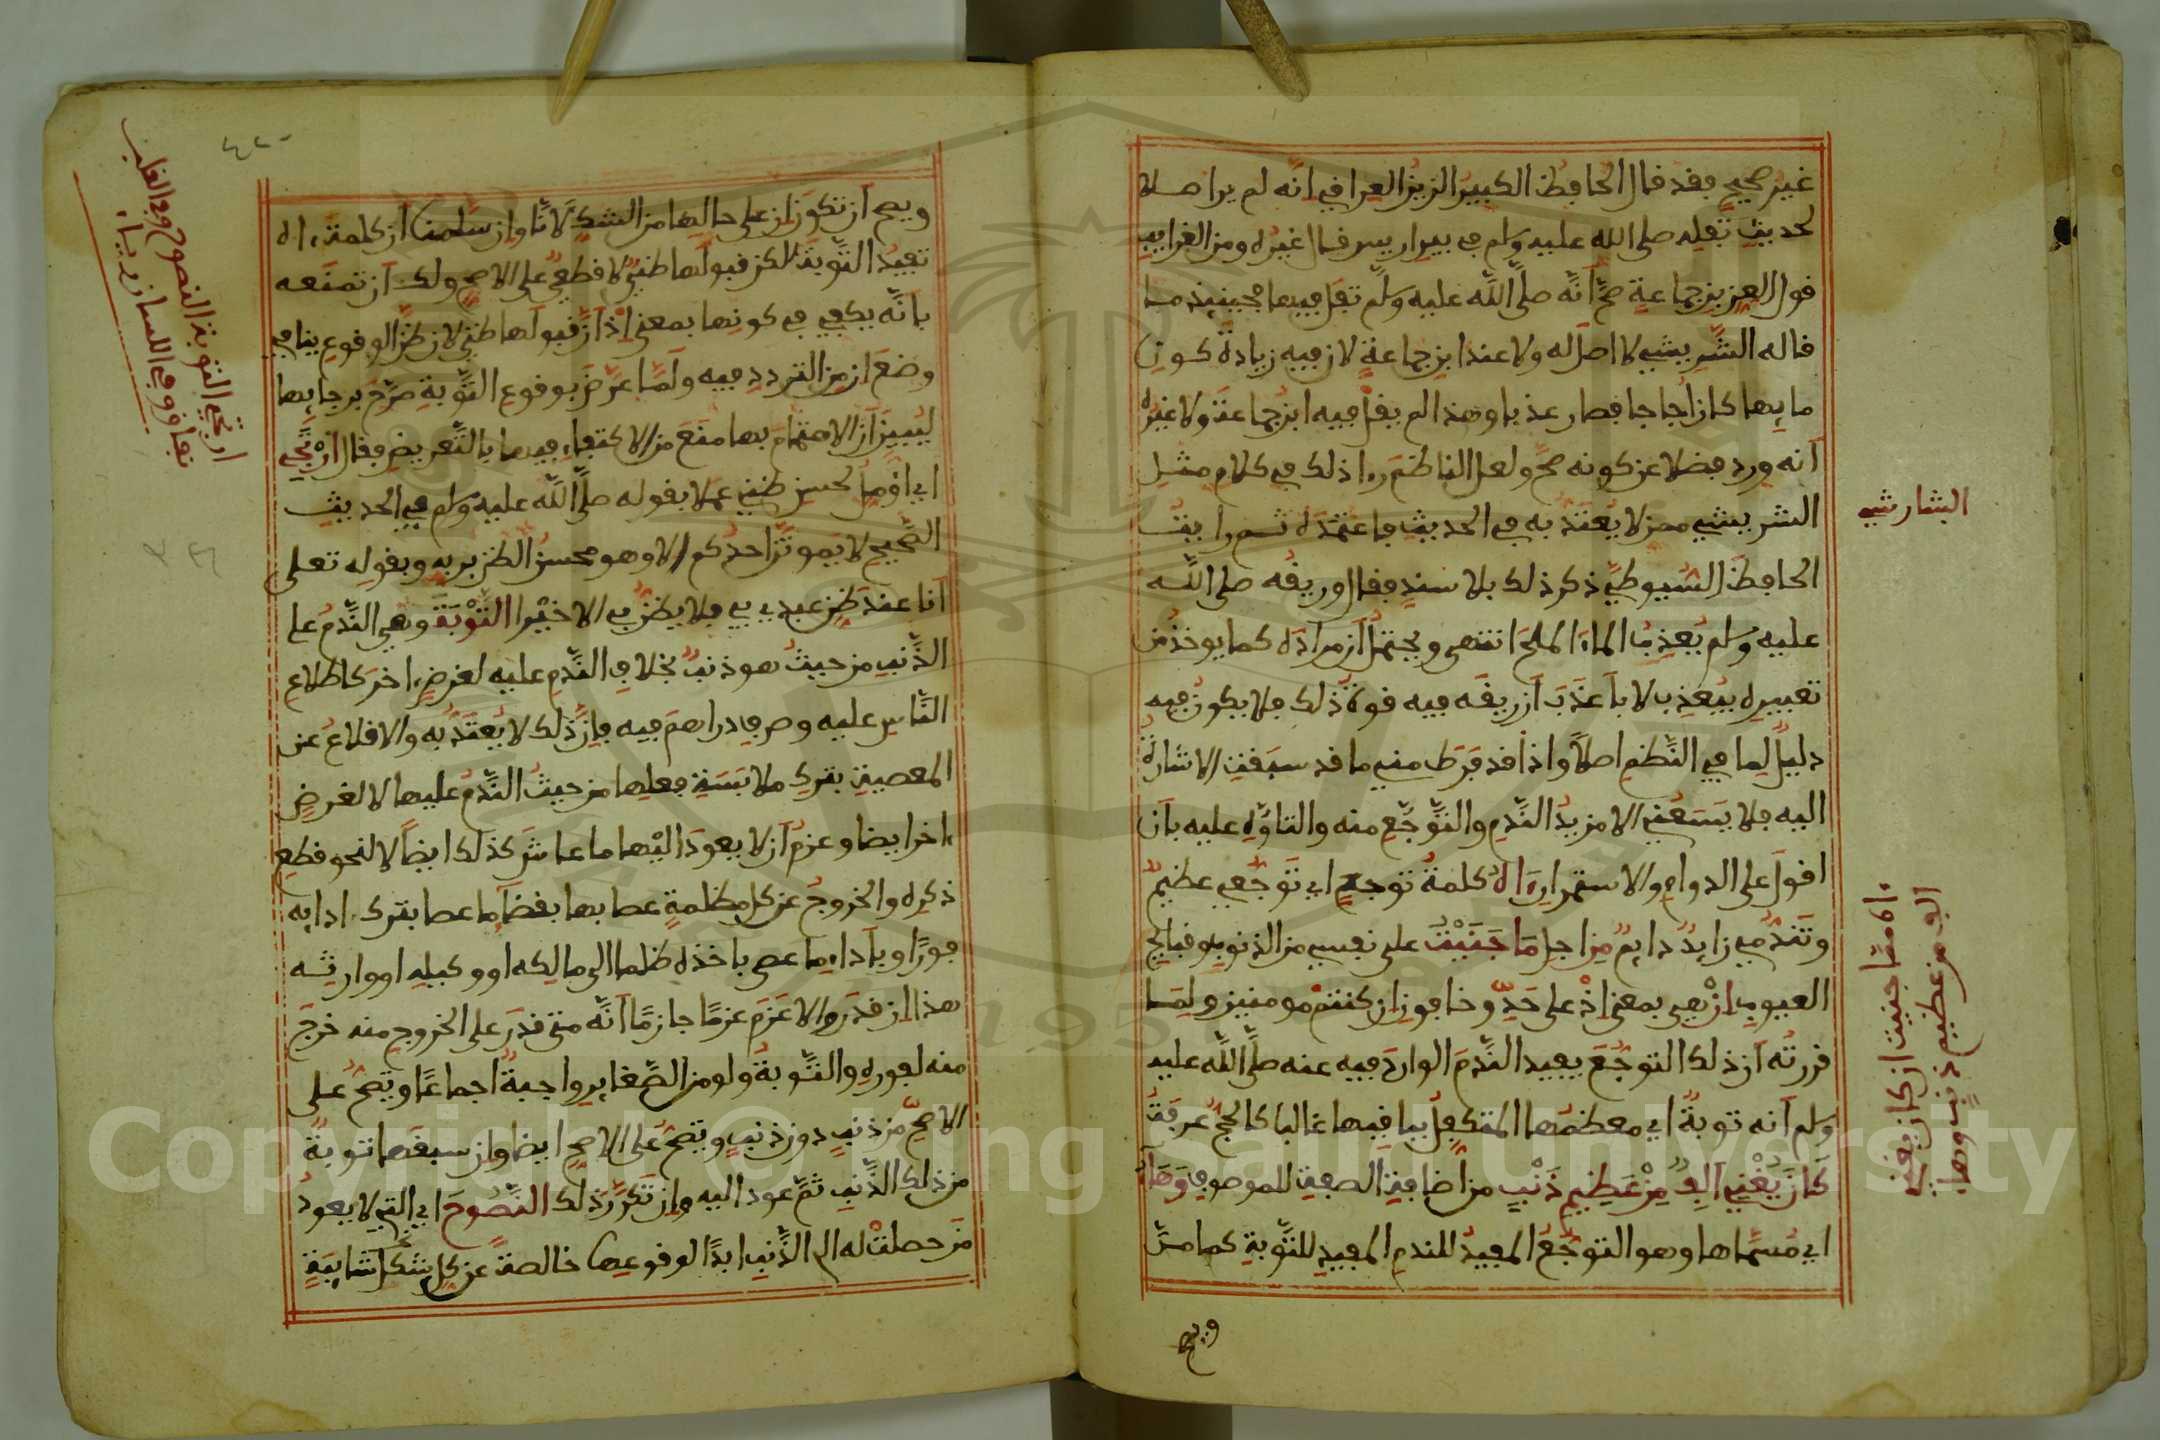 غير صحيح فقد قال الحافظ الكبير الزين العراقي انه لم ير اصلا
لحديث تفله صلى الله عليه وسلم في بير اريس قال غيره ومن الغرايب
قول العز بن جماعة صح أنه صلى الله عليه وسلم تفل فيها فحينيذ ما
قاله الشريشي لا اصل له ولا عند ابن جماعة لان فيه زيادة كون
مايها كان أجاجا فصار عذبا وهذا لم يقل فيه ابن جماعة ولا غيره
أنه ورد فضلا عن كونه صح ولعل الناظم راذلك في كلام مثل
الشريشي ممن لا يعتد به في الحديث فاعتمده ثم رايت
الحافظ السيوطي ذكر ذلك بلا سند فقال وريقه صلى الله
عليه وسلم يعذب الماء الملح انتهى ويحتمل أن مراده كما يوخذ من
تعبيره بيعذب لا باعذب أن ريقه فيه قوة ذلك فلا يكون فيه
دليل لما في النظم اصلا واذا قد فرط مني ما قد سبقت الاشارة
اليه فلا يسعني الا مزيد الندم والتوجع منه والتاوه عليه بأن
اقول على الدوام والاستمرار اه كلمة توجع اي توجعي عظيم
وتندمي زايد دايم من اجل ما جنيت على نفسي من الذنوب وقبايح
العيوب ان هي بمعنى إذ على حد وخافون ان كنتم مومنين ولما
قررته أن ذلك التوجع يفيد الندم الوارد فيه عنه صلى الله عليه
وسلم أنه توبة اي معظمها المتكفل بباقيها غالبا كالحج عرفة
كان يغني الف من عظيم ذنب من اضافة الصفة للموصوف وهاء
اي مسماها وهو التوجع المفيد للندم المفيد للتوبة كما مر
ويصح
الشارشي
ءاه مما جنيت ان كان يغني
الف من عظيم ذنب وهاء
ويصح أن تكون ان على حالها من الشك لأنا وان سلمنا أن كلمة ءاه
تفيد التوبة لكن قبولها ظني لا قطعي على الاصح ولك أن تمنعه
بانه يكفي في كونها بمعنى إذ أن قبولها ظني لان ظن الوقوع ينافي
وضع ان من التردد فيه ولما عرض بوقوع التوبة صرح برجايها
ليبين أن الاهتمام بها منع من الاكتفاء فيها بالتعريض فقال ارتجي
اي اؤمل لحسن ظني عملا بقوله صلى الله عليه وسلم في الحديث
الصحيح لا يموتن احدكم الا وهو محسن الظن بربه وبقوله تعلى
أنا عند ظن عبدي بي فلا يظن بي الا خيرا التوبة وهي الندم على
الذنب من حيث هو ذنب بخلاف الندم عليه لغرض ءاخر كاطلاع
الناس عليه وصرف دراهم فيه فان ذلك لا يعتد به والاقلاع عن
المعصية بترك ملابسة فعلها من حيث الندم عليها لا لغرض
ءاخر ايضا وعزم أن لا يعود اليها ما عاش كذلك ايضا لا لنحو قطع
ذكره والخروج عن كل مظلمة عصا بها بقضا ما عصا بترك ادايه
فورا وباداء ما عصى باخذه ظلما الى مالكه او وكيله او وارثه
هذا ان قدر والا عزم عزما جازما أنه متى قدر على الخروج منه خرج
منه لفوره والتوبة ولو من الصغاير واجبة اجماعا وتصح على
الاصح من ذنب دون ذنب وتصح على الاصح ايضا وان سبقها توبة
من ذلك الذنب ثم عود اليه وان تكرر ذلك النصوح اي التي لا يعود
من حصلت له الى الذنب ابدا لوقوعها خالصة عن كل شك شايبة
ارتجي التوبة النصوح وفي القلب
نفاق وفي اللسان رياء